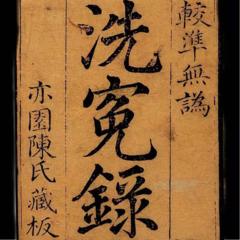 較準無譌
洗冤錄
亦園陳氏藏板